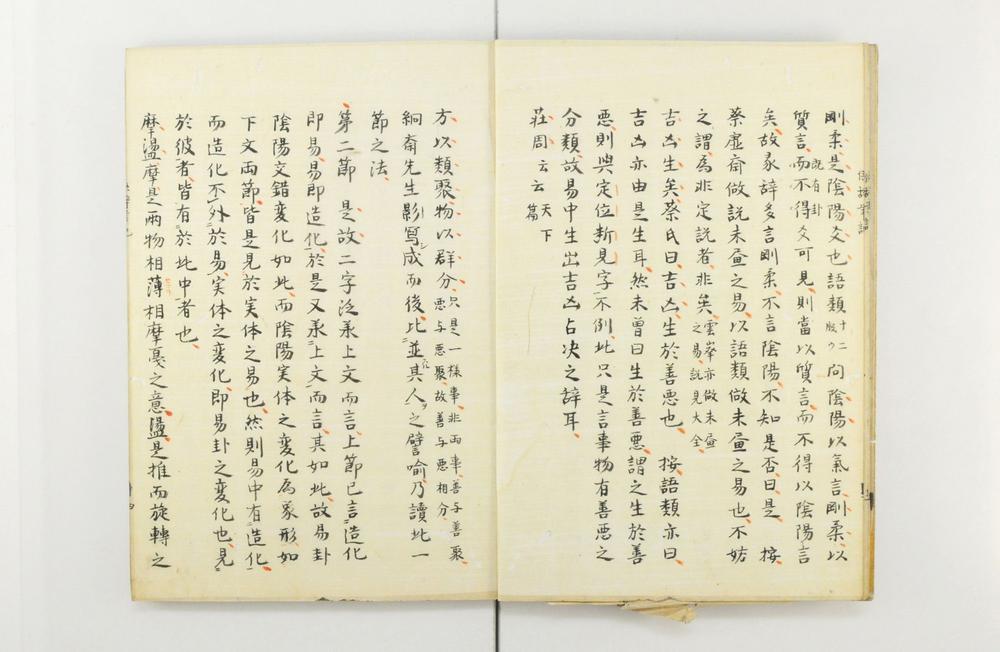 剛柔是陰陽爻也語類十二版ウ問陰陽以氣言剛柔以
質言既有卦爻可見則當以質言而不得以陰陽言
矣故彖辞多言剛柔不言陰陽不知是否曰是　按
蔡虚斎做説未畫之易以語類做未畫之易也不妨
之謂為非定説者非矣雲峯亦做未畫之易説見大全
吉凶生矣蔡氏曰吉凶生於善悪也　按語類亦曰
吉凶亦由是生耳然未曽曰生於善悪謂之生於善
悪則與定位断見字不例此只是言事物有善悪之
分類故易中生出吉凶占决之辞耳
荘周云云天下篇
方以類聚物以群分只是一様事非両事善与善聚悪与悪聚故善与悪相分
絅斎先生影寫成而後比並其人之譬喩乃讀此一
節之法
第二節　是故二字泛承上文而言上節已言造化
即易易即造化於是又承上文而言其如此故易卦
陰陽交錯変化如此而陰陽実体之変化為象形如
下文両節皆是見於実体之易也然則易中有造化
而造化不外於易実体之変化即易卦之変化也見
於彼者皆有於此中者也
摩盪摩是両物相薄相摩戛之意盪是推而旋轉之